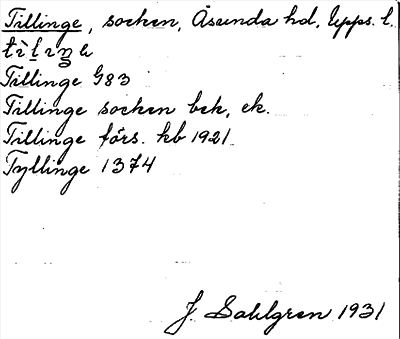 Tillinge, socken, Åsunda hd, Upps. l.
Tillinge G83
Tillinge socken bek, ek.
Tillinge förs. kb 1921
Tyllinge 1374
J. Sahlgren 1931